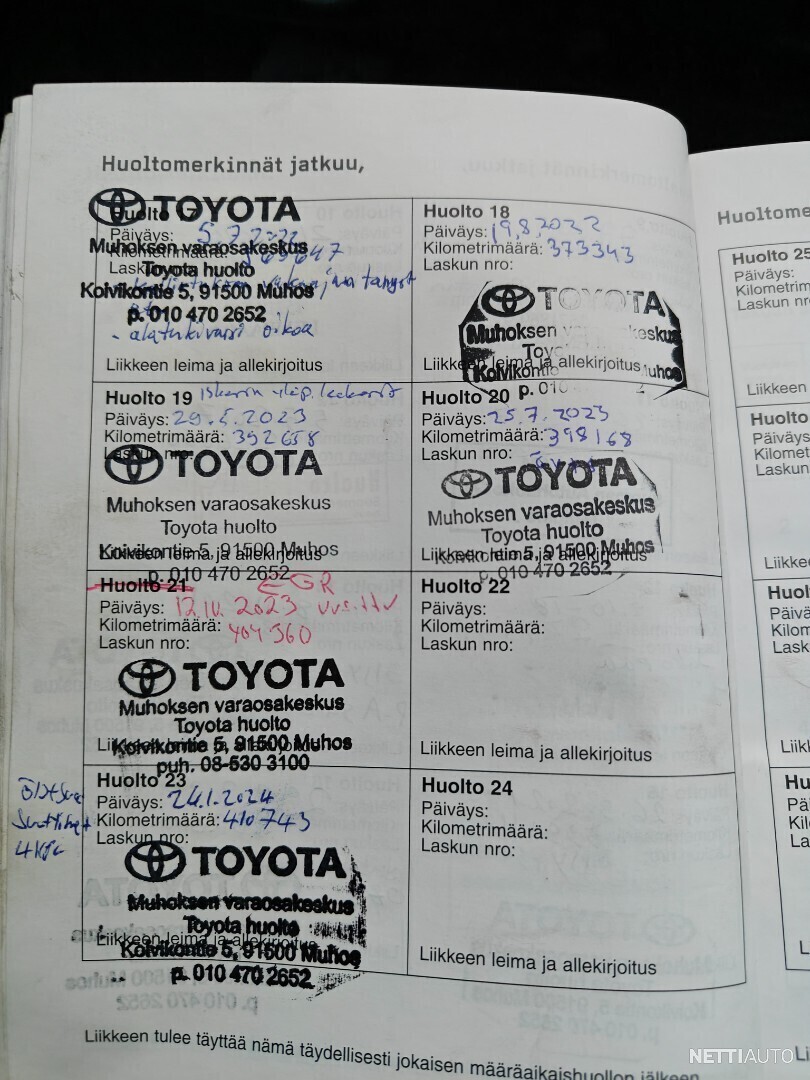 Huoltomerkinnät jatkuu,
Huolto 17
TOYOTA
Päiväys: 5.7.2022
Muhoksen varaosakeskus
Kilometrimäärä:
Laskun
Toyota huolto
Koivikontie 5, 91500 Muhos
p. 010 470 2652
- alatukivarsi oikea
Liikkeen leima ja allekirjoitus
Huolto 18
Päiväys: 19.8.2022
Kilometrimäärä: 373343
Laskun nro:
TOYOTA
Muhoksen varaosakeskus
Toyota
Koivikontie Muhos
Liikkeen leima ja allekirjoitus
p. 010
Huolto 19
Päiväys: 29.5.2023
Kilometrimäärä: 392658
Laskun nro:
TOYOTA
Muhoksen varaosakeskus
Toyota huolto
Koivikontie 5, 91500 Muhos
Liikkeen leima ja allekirjoitus
p. 010 470 2652
Huolto 20
Päiväys: 25.7.2023
Kilometrimäärä: 398168
Laskun nro:
TOYOTA
Muhoksen varaosakeskus
Toyota huolto
Koivikontie 5, 91500 Muhos
Liikkeen leima ja allekirjoitus
p. 010 470 2652
Huolto 21 EGR
Päiväys: 12.10.2023
Kilometrimäärä: 404360
Laskun nro:
TOYOTA
Muhoksen varaosakeskus
Toyota huolto
Koivikontie 5, 91500 Muhos
Liikkeen leima ja allekirjoitus
puh. 08-530 3100
Huolto 22
Päiväys:
Kilometrimäärä:
Laskun nro:
Liikkeen leima ja allekirjoitus
Huolto 23
Päiväys: 24.1.2024
Kilometrimäärä: 410743
Laskun nro:
4 kpl
TOYOTA
Muhoksen varaosakeskus
Toyota huolto
Liikkeen leima ja allekirjoitus
Koivikontie 5, 91500 Muhos
p. 010 470 2652
Huolto 24
Päiväys:
Kilometrimäärä:
Laskun nro:
Liikkeen leima ja allekirjoitus
Liikkeen tulee täyttää nämä täydellisesti jokaisen määräaikaishuollon jälkeen
Huoltome
Huolto 25
Päiväys:
Kilometrim
Laskun nro
Liikkeen l
Huolto
Päiväys
Kilomet
Laskun
Liikkee
Huol
Päivä
Kilom
Lask
Liik
Hu
Pä
Kil
La
Li
NETTIAUTO